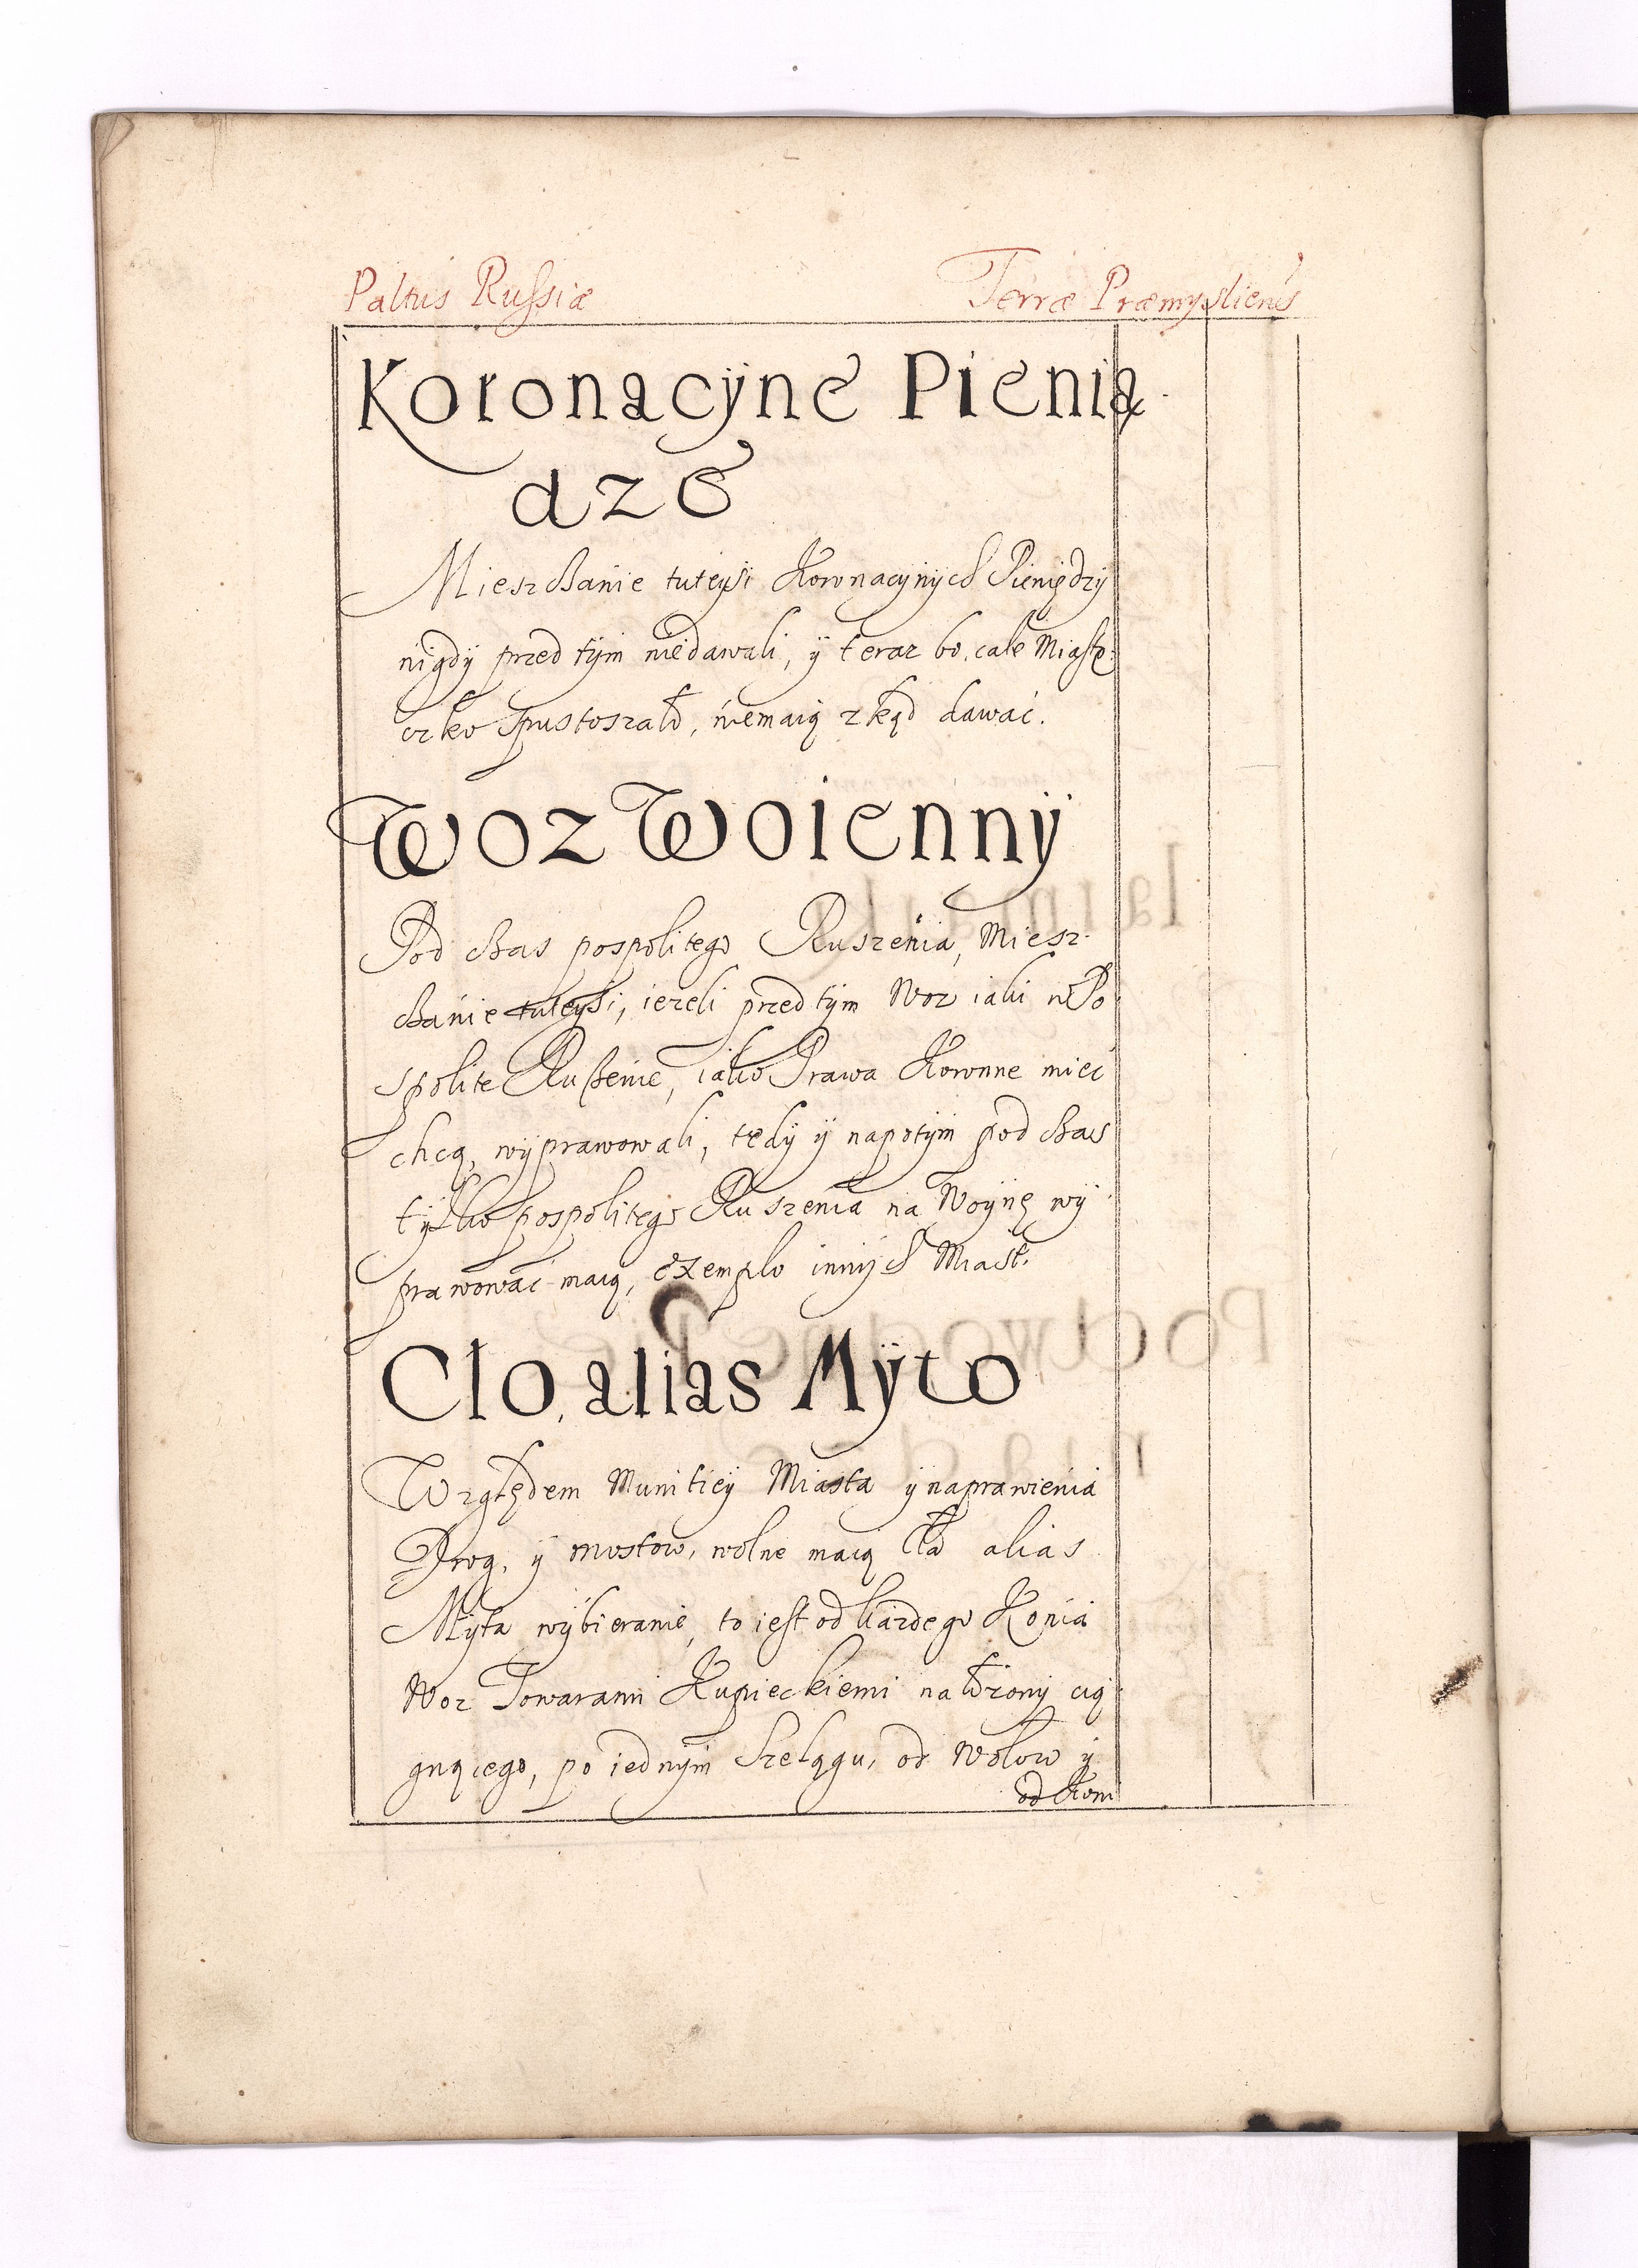 Paltus Russiæ Terræ Præmysliens
Koronacÿne Pienią
dze
Mieszczanie tuteysi Koronacÿnÿch Pieniędzÿ
nigdÿ przed tÿm niedawali, ÿ teraz bo, całe Miaste
czko Spustoszało, niemaią zkąd dawać.
Woz Woiennÿ
Pod czas pospolitego Ruszenia, Miesz
czanie tuteÿsi, ieżeli przed tÿm Woz iaki w Po
spolite Rußenie, iako Prawa Koronne mieć
chcą, wÿprawowali, tedÿ ÿ napotÿm pod czas
tÿlko pospolitego Ruszenia na Woÿnę wÿ
prawować maią, exemplo innÿch Miast.
Clo, alias Mÿto
Względem Munitieÿ Miasta ÿ naprawienia
Drog, ÿ mostow, wolne maią Cła alias
Mÿta wÿbieranie, to iest od każdego Konia
Woz Towarami Kupieckiemi nałożony cią
gnącego, po iednÿm Szelągu, od Wołow ÿ
od Koni